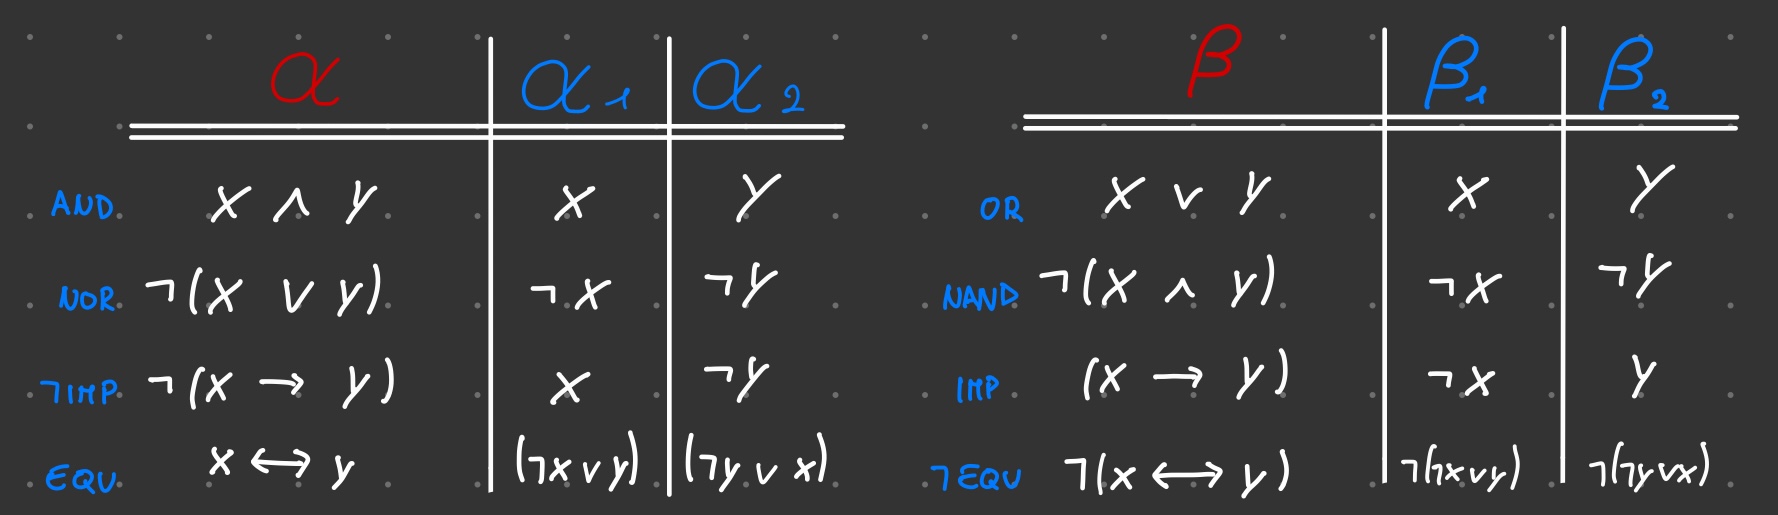 α α₁ α₂
AND X ∧ y X Y
NOR ¬(X ∨ y) ¬X ¬Y
¬IMP ¬(X → y) X ¬Y
EQU X ↔ y (¬X ∨ y) (¬y ∨ X)
β β₁ β₂
OR X ∨ y X Y
NAND ¬(X ∧ y) ¬X ¬Y
IMP (X → y) ¬X y
¬EQU ¬(X ↔ y) ¬(¬X∨y) ¬(¬y∨X)